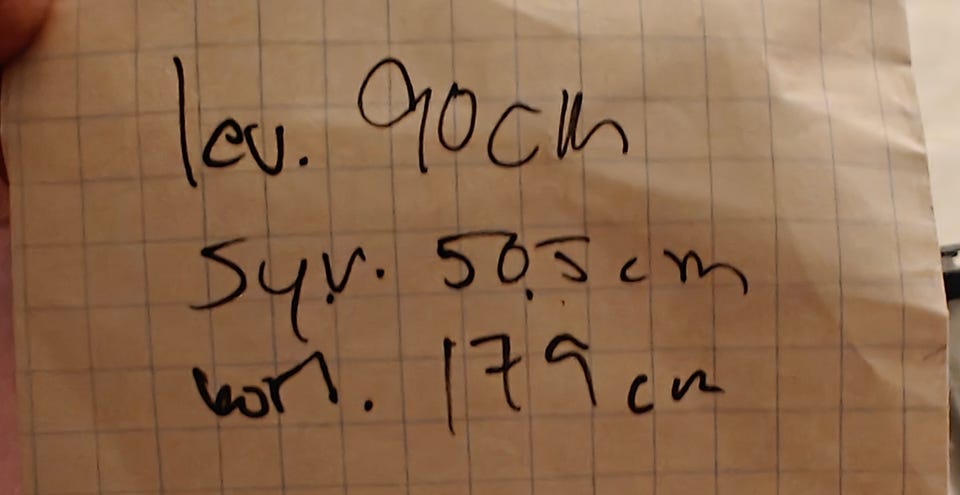 lev. 90cm
syv. 50.5 cm
kork. 179 cm